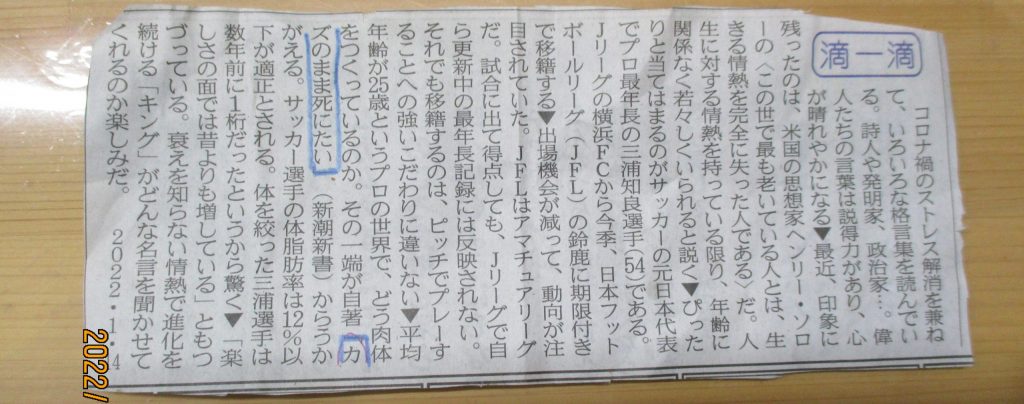 滴一滴
コロナ禍のストレス解消を兼ね
て、いろいろな格言集を読んでい
る。詩人や発明家、政治家…。偉
人たちの言葉は説得力があり、心
が晴れやかになる▼最近、印象に
残ったのは、米国の思想家ヘンリー・ソロ
ーの〈この世で最も老いている人とは、生
きる情熱を完全に失った人である〉だ。人
生に対する情熱を持っている限り、年齢に
関係なく若々しくいられると説く▼ぴった
りと当てはまるのがサッカーの元日本代表
でプロ最年長の三浦知良選手(54)である。
Jリーグの横浜FCから今季、日本フット
ボールリーグ(JFL)の鈴鹿に期限付き
で移籍する▼出場機会が減って、動向が注
目されていた。JFLはアマチュアリーグ
だ。試合に出て得点しても、Jリーグで自
ら更新中の最年長記録には反映されない。
それでも移籍するのは、ピッチでプレーす
ることへの強いこだわりに違いない▼平均
年齢が25歳というプロの世界で、どう肉体
をつくっているのか。その一端が自著「カ
ズのまま死にたい」(新潮新書)からうか
がえる。サッカー選手の体脂肪率は12%以
下が適正とされる。体を絞った三浦選手は
数年前に1桁だったというから驚く▼「楽
しさの面では昔よりも増している」ともつ
づっている。衰えを知らない情熱で進化を
続ける「キング」がどんな名言を聞かせて
くれるのか楽しみだ。 2022・1・4
2022/